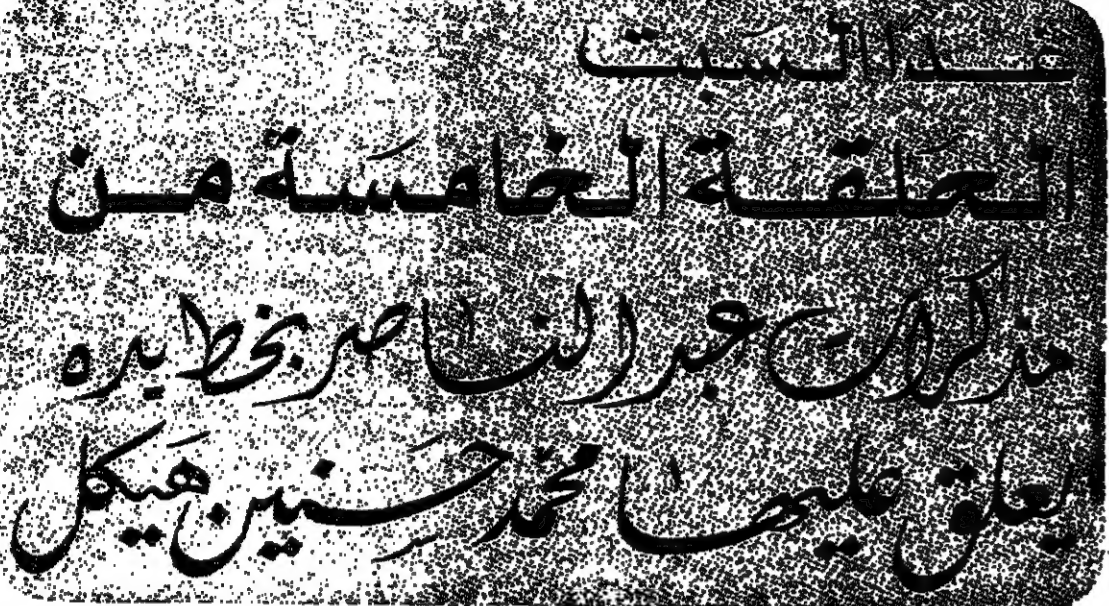 غدا السبت
الحلقة الخامسة من
مذكرات عبد الناصر بخط يده
يعلق عليها محمد حسنين هيكل